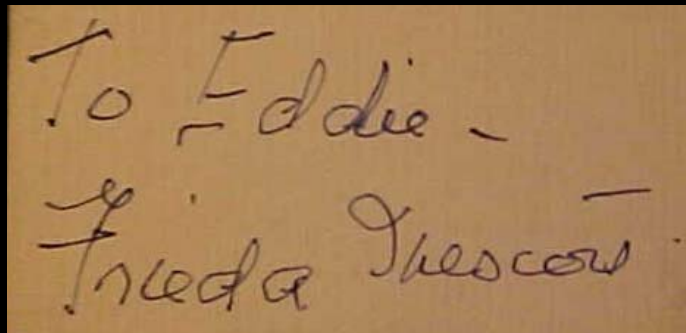 To Eddie -
Frieda Inescort.